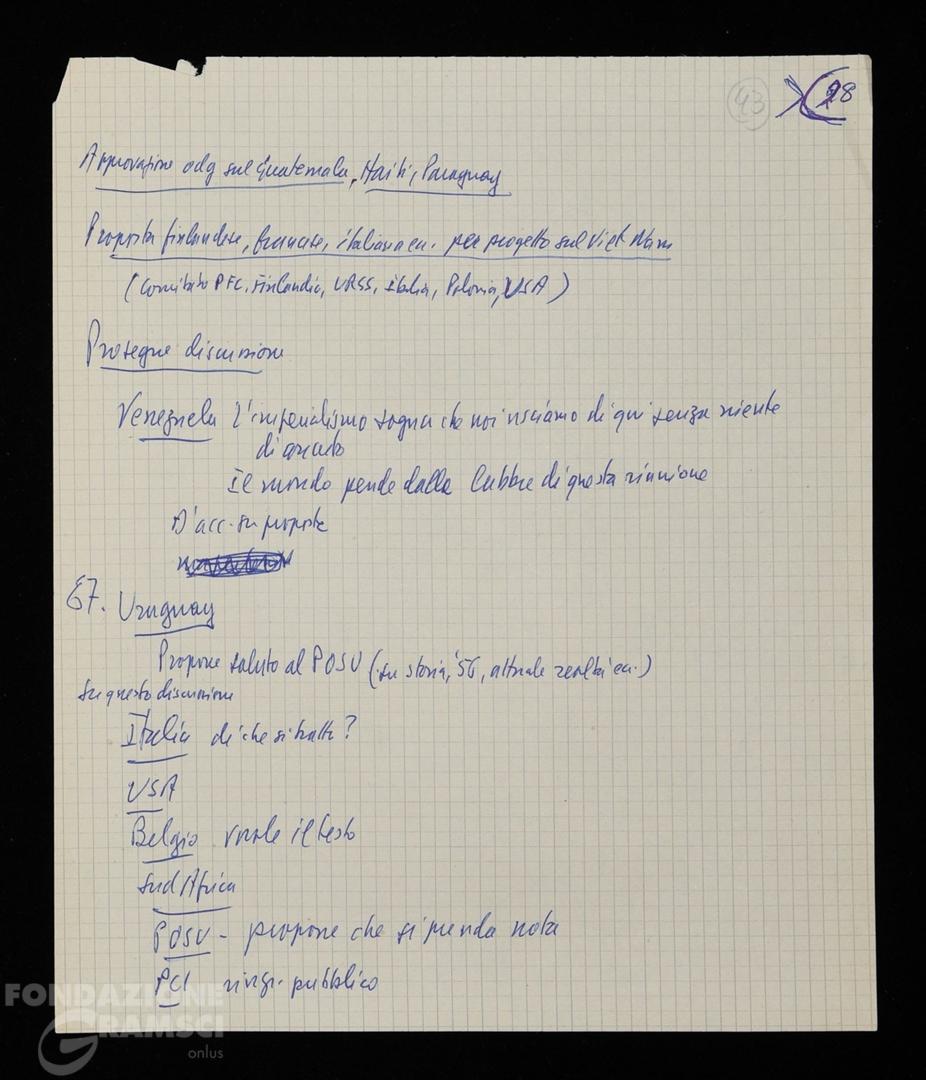 43 28
Approvazione odg sul Guatemala, Haiti, Paraguay
Proposta finlandese, francese, italiana ecc. per progetto sul Viet Nam
(Comitato PFC, Finlandia, URSS, Italia, Polonia, USA)
Prosegue discussione
Venezuela L'imperialismo sogna che noi usciamo di qui senza niente
di
Il mondo pende dalle labbra di questa riunione
D'acc. su proposte
67. Uruguay
Propone saluto al POSU (su storia, '56, attuale realtà ecc.)
Su questo discussione
Italia di che si tratta?
USA
Belgio vuole il testo
Sud Africa
POSU - propone che si prenda nota
PCI ringr. pubblico
FONDAZIONE
GRAMSCI
onlus